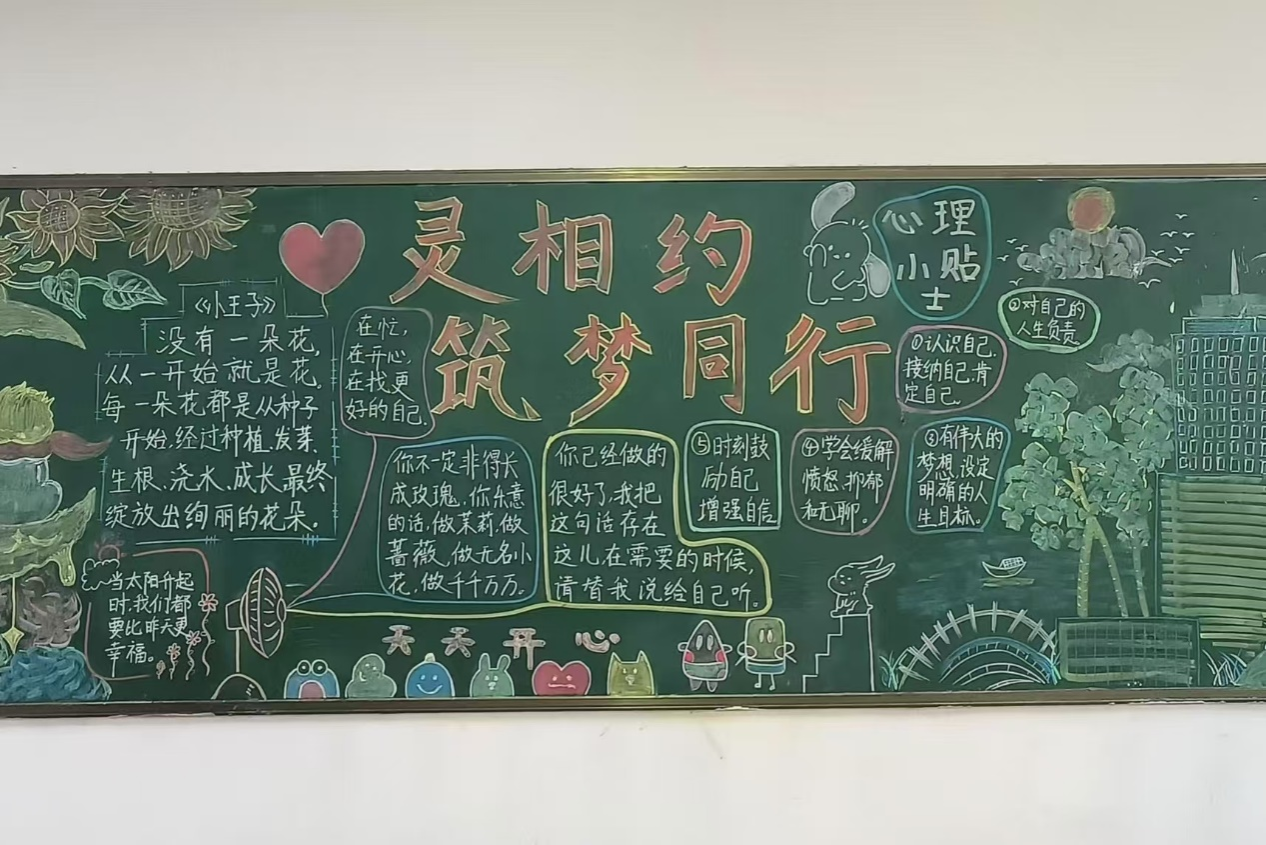 灵相约
筑梦同行
《小王子》
没有一朵花,
从一开始就是花,
每一朵花都是从种子
开始,经过种植、发芽、
生根、浇水、成长最终
绽放出绚丽的花朵。
当太阳升起
时,我们都
要比昨天更
幸福。
在忙,
在开心,
在找更
好的自己,
你不一定非得长
成玫瑰,你乐意
的话,做茉莉,做
蔷薇,做无名小
花,做千千万万。
你已经做的
很好了,我把
这句话存在
这儿,在需要的时候,
请替我说给自己听。
天天开心
心理
小贴
士
①认识自己,
接纳自己,肯
定自己。
②对自己的
人生负责
③有伟大的
梦想,设定
明确的人
生目标。
④学会缓解
愤怒、抑郁
和无聊。
⑤时刻鼓
励自己
增强自信